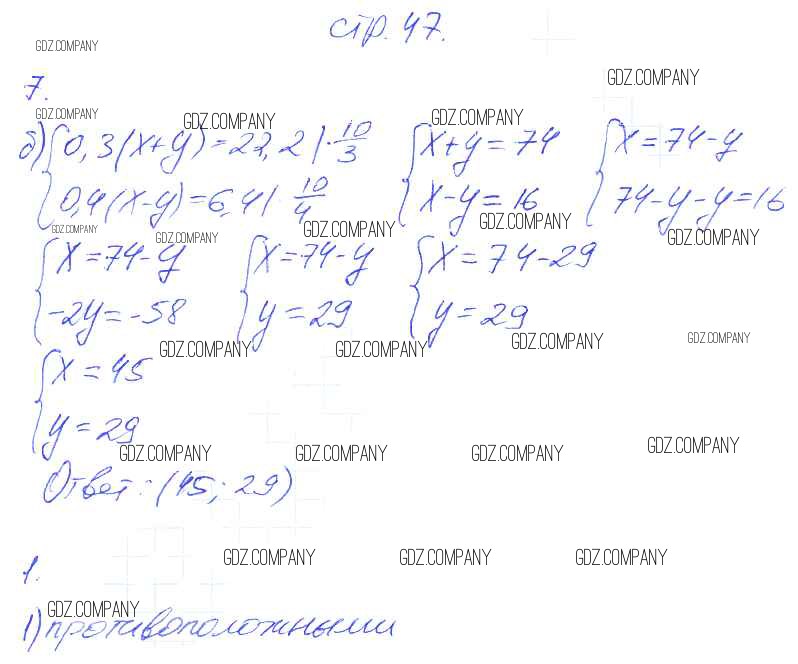 стр. 47.
GDZ.COMPANY
7.
GDZ.COMPANY
GDZ.COMPANY GDZ.COMPANY GDZ.COMPANY
б) { 0,3(x+y)=22,2 | · 10/3 { x+y=74 { x=74-y
0,4(x-y)=6,4 | · 10/4 x-y=16 74-y-y=16
GDZ.COMPANY GDZ.COMPANY GDZ.COMPANY GDZ.COMPANY GDZ.COMPANY
{ x=74-y { x=74-y { x=74-29
-2y=-58 y=29 y=29
GDZ.COMPANY GDZ.COMPANY GDZ.COMPANY GDZ.COMPANY
{ x=45
y=29
GDZ.COMPANY GDZ.COMPANY GDZ.COMPANY GDZ.COMPANY
Ответ: (45; 29)
GDZ.COMPANY GDZ.COMPANY GDZ.COMPANY
1.
GDZ.COMPANY
1) противоположными